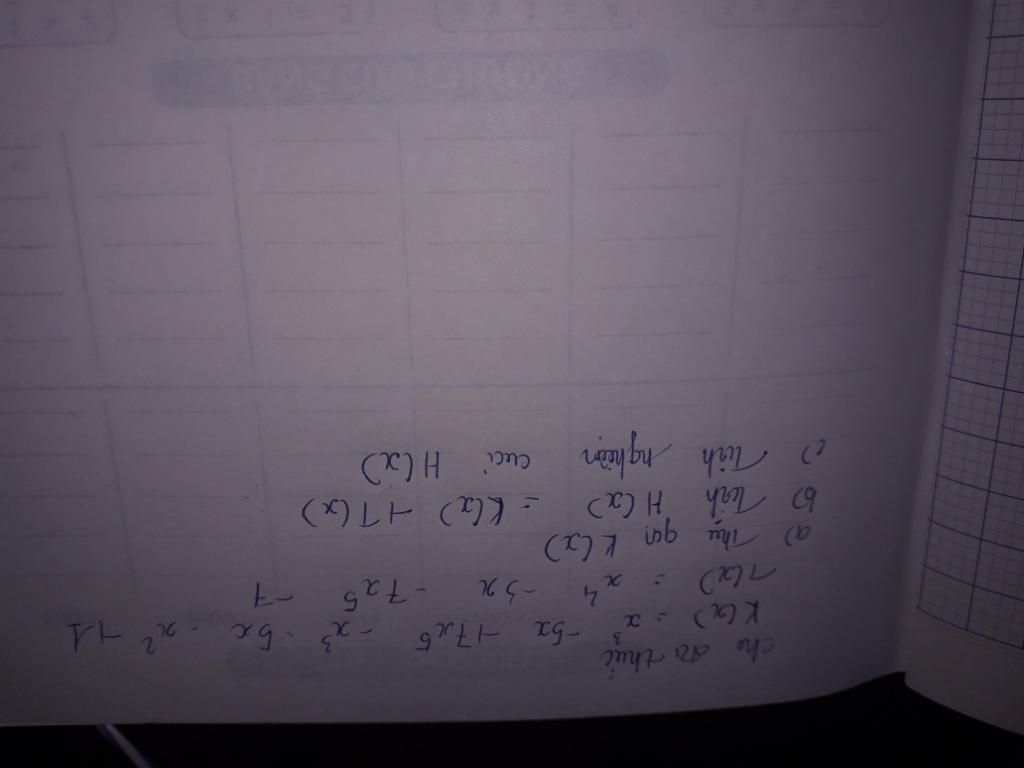 cho đa thức
K(x) = x³ -5x +7x⁵ - x³ - 5x - x² +1
T(x) = x⁴ -3x -7x⁵ -1
a) Thu gọn K(x)
b) Tính H(x) = K(x) +T(x)
c) Tính nghiệm của H(x)